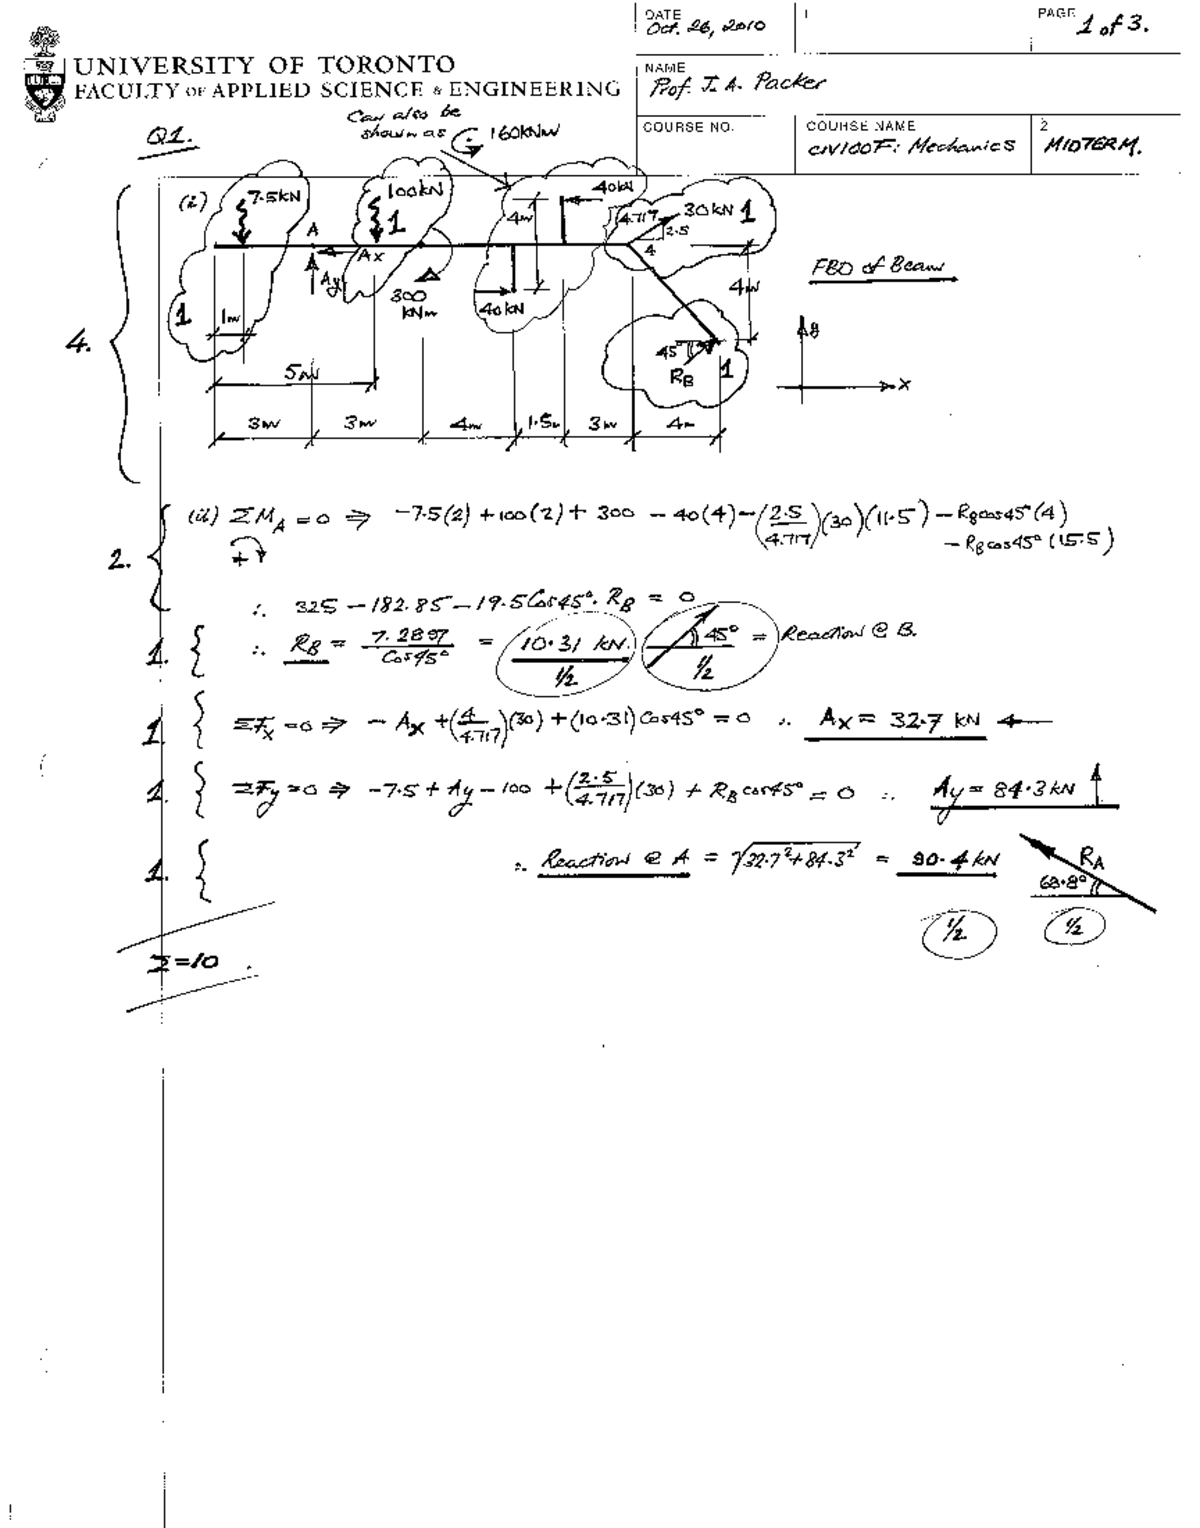 DATE
Oct. 26, 2010
1
PAGE
1 of 3.
UNIVERSITY OF TORONTO
FACULTY OF APPLIED SCIENCE & ENGINEERING
NAME
Prof. J. A. Packer
COURSE NO.
COURSE NAME
CIV100F: Mechanics
2
MIDTERM.
Q1.
Can also be
shown as 160kNm
4.
(i)
7.5kN
A
100kN
1
4m
40kN
4.717
30 kN 1
2.5
4
Ax
Ay
300
kNm
40kN
4m
FBD of Beam
1
1m
45°
RB
1
y
x
5m
3m 3m 4m 1.5m 3m 4m
2.
(ii) ΣM_A = 0 ⇒ -7.5(2) + 100(2) + 300 - 40(4) - (2.5/4.717)(30)(11.5) - RB cos45° (4)
- RB cos45° (15.5)
+
∴ 325 - 182.85 - 19.5 Cos45°. RB = 0
1. ∴ RB = 7.2897/Cos45° = 10.31 kN. 45° = Reaction @ B.
1/2 1/2
1. ΣFx = 0 ⇒ - Ax + (4/4.717)(30) + (10.31) Cos45° = 0 ∴ Ax = 32.7 kN ←
1. ΣFy = 0 ⇒ -7.5 + Ay - 100 + (2.5/4.717)(30) + RB cos45° = 0 ∴ Ay = 84.3 kN ↑
1. ∴ Reaction @ A = √32.7² + 84.3² = 90.4 kN
RA
68.8°
1/2 1/2
Σ = 10